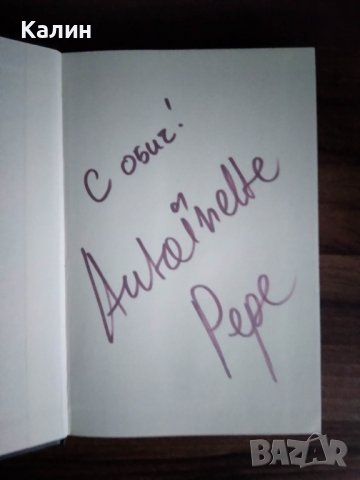 Калин
С обич!
Antoinette
Pepe
BAZAR